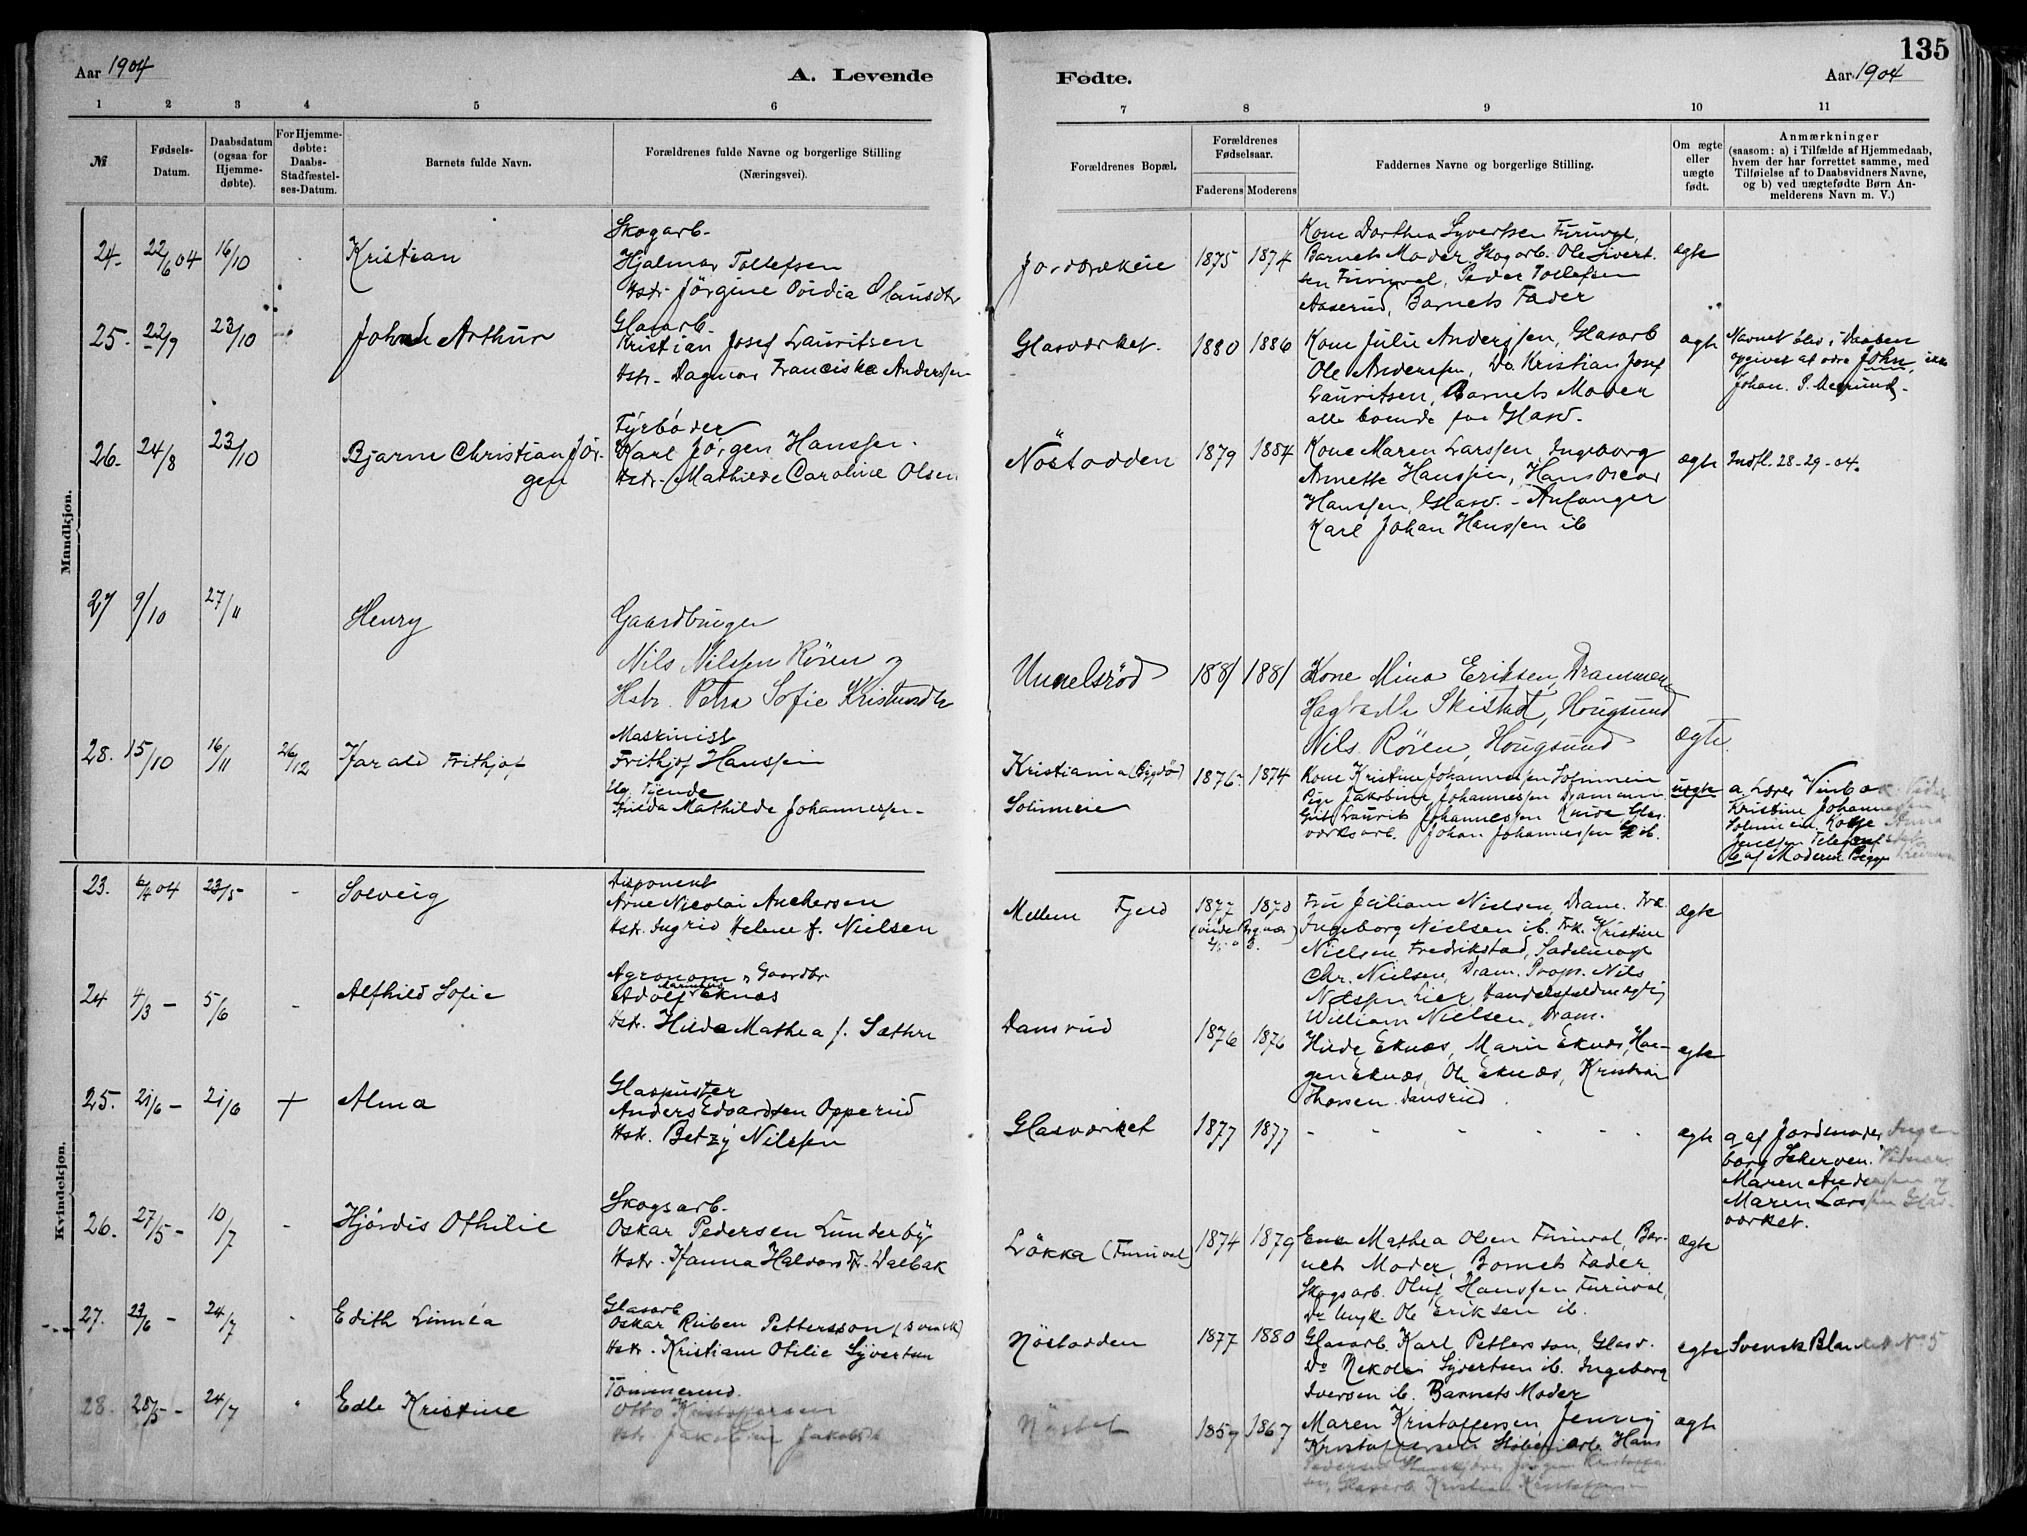 135
Aar 1904
A. Levende
Fødte.
Aar 1904
1 2 3 4 5 6 7 8 9 10 11
№
Fødsels-
Datum.
Daabsdatum
(ogsaa for
Hjemme-
døbte).
For Hjemme-
døbte:
Daabs-
Stadfæstel-
ses-Datum.
Barnets fulde Navn.
Forældrenes fulde Navne og borgerlige Stilling
(Næringsvei).
Forældrenes Bopæl.
Forældrenes
Fødselsaar.
Faderens Moderens
Faddernes Navne og borgerlige Stilling.
Om ægte
eller
uægte
født.
Anmærkninger
(saasom: a) i Tilfælde af Hjemmedaab,
hvem der har forrettet samme, med
Tilføielse af to Daabsvidners Navne,
og b) ved uægtefødte Børn An-
melderens Navn m. V.)
Mandkjøn.
24. 22/6 04 16/10 Kristian
Skogarb.
Hjalmar Tollefsen
Hstr. Jörgine Clausdtr
1875 1874
Kone Dorthea Syvertsen Furuval,
Barnets Moder Skogarb. Ole Sivert-
sen Furuval, Peder Tollefsen
Aaserud, Barnets Fader
ægte
25. 22/9 23/10 Arthur
Glasarb.
Kristian Josef Lauritsen
Hstr. Dagmar Franciska Anderssen
Glasværket. 1880 1886
Kone Julie Anderssen, Glasarb
Ole Anderssen, Do Kristian Josef
Lauritsen, Barnets Moder
alle boende paa Glasv.
ægte
Navnet blev i Daaben
opgivet at være John, ikke
Johan.
26. 24/8 23/10 Bjarne Christian Jör-
gen
Fyrbøder
Karl Jørgen Hanssen.
Hstr. Mathilde Caroline Olsen
Nöstodden 1879 1884
Kone Maren Larssen, Ingeborg
Annette Hanssen, Hans Oscar
Hanssen, Glasv. - Anfanger
Karl Johan Hanssen ib
ægte
Indfl. 28-29-04.
27 9/10 27/11 Henry
Gaardbruger
Nils Nilssen Røren og
Hstr. Petra Sofie
1881 1881
Kone Mina Eriksen, Drammen
Skistad, Hougsund
Nils Røren, Hougsund
ægte.
28. 15/10 16/11 26/12 Harald Frithjof
Maskinist
Frithjof Hanssen
Ug. Tjende
Hilda Mathilde Johannessen
Kristiania (Bygdö)
1876 1874
Kone Kristine Johannessen
Pige Jakobine Johannessen Drammen
Gut Laurits Johannessen Glas-
værksarb. Johan Johannessen ib.
uægte
a. Lærer
Kristine Johannessen
b af Moderen
Kvindekjøn.
23. 6/4 04 23/5 - Solveig
Disponent
Arne Nicolai Anchersen
Hstr. Ingrid Helene f. Nielsen
Mellem Fjeld 1877 1870
Fru Juliane Nielsen, Dram. Frk.
Ingeborg Nielsen ib. Frk. Kristine
Nielsen Fredrikstad, Sadelmager
Chr. Nielsen, Dram. Prop. Nils
Nilssen Lier, Handelsfuldmægtig
William Nielsen, Dram.
ægte
24 4/3 - 5/6 - Alfhild Sofie
Agronom, Gaardbr
Adolf Eknæs
Hstr. Hilda Mathea f. Sæthre
Dansrud 1876 1876
Hilda Eknæs, Marie Eknæs, Haa-
gen Eknæs, Ole Eknæs, Kristian
Thorsen Dansrud.
ægte
25. 21/6 - 21/6 + Alma
Glaspuster
Anders Edvardsen Opperud
Hstr. Betzy Nilssen
Glasværket 1877 1877
- - - - - -
ægte
a af Jordmoder Inge-
borg Skerven.
Maren Anderssen og
Maren Larssen Glas-
værket.
26. 27/5 - 10/7 - Hjördis Othilie
Skogsarb.
Oskar Pedersen Lunderby
Hstr. Hanna Halvorsdtr. Dalbak
Løkka (Furuval) 1874 1879
Enke Mathea Olsen Furuval, Bar-
nets Moder, Barnets Fader,
Skogsarb. Oluf Hanssen Furuval,
Do Ungk. Ole Eriksen ib.
ægte
27. 23/6 - 24/7 Edith Linnéa
Glasarb
Oskar Ruben Pettersson (svensk)
Hstr. Kristiane Otilie Syvertsen
Nöstodden 1877 1880
Glasarb. Karl Pettersson, Glasv.
Do Nikolai Syvertsen ib. Ingeborg
Iversen ib. Barnets Moder
ægte
Svensk Blanket No 5
28. 28/5 - 24/7 Edle Kristine
Tømmermd.
Otto Kristoffersen
1857 1867
Maren Kristoffersen Jenny
Kristoffersen Hans
Pedersen Jörgen Kristoffer-
sen, Glasarb Kristian Kristoffersen
ægte